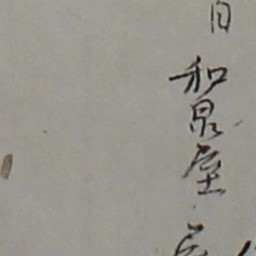 日和泉屋